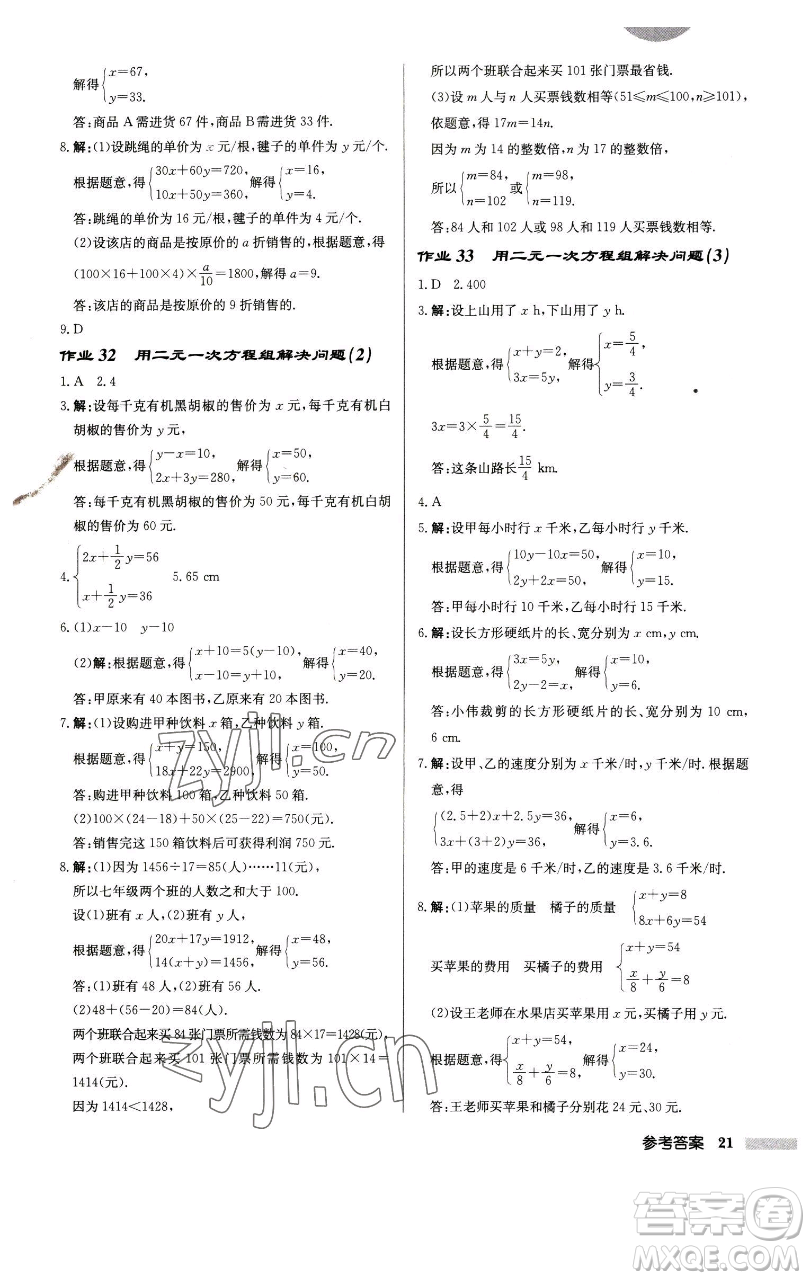 解得{x=67,
y=33.
答:商品 A 需进货 67 件,商品 B 需进货 33 件.
8.解:(1)设跳绳的单价为 x 元/根,毽子的单件为 y 元/个.
根据题意,得{30x+60y=720, 解得{x=16,
10x+50y=360, y=4.
答:跳绳的单价为 16 元/根,毽子的单件为 4 元/个.
(2)设该店的商品是按原价的 a 折销售的,根据题意,得
(100×16+100×4)×a/10=1800,解得 a=9.
答:该店的商品是按原价的 9 折销售的.
9.D
作业 32 用二元一次方程组解决问题(2)
1.A 2.4
3.解:设每千克有机黑胡椒的售价为 x 元,每千克有机白
胡椒的售价为 y 元,
根据题意,得{y-x=10, 解得{x=50,
2x+3y=280, y=60.
答:每千克有机黑胡椒的售价为 50 元,每千克有机白胡
椒的售价为 60 元.
4.{2x+1/2y=56
x+1/2y=36 5.65 cm
6.(1)x-10 y-10
(2)解:根据题意,得{x+10=5(y-10), 解得{x=40,
x-10=y+10, y=20.
答:甲原来有 40 本图书,乙原来有 20 本图书.
7.解:(1)设购进甲种饮料 x 箱,乙种饮料 y 箱.
根据题意,得{x+y=150, 解得{x=100,
18x+22y=2900, y=50.
答:购进甲种饮料 100 箱,乙种饮料 50 箱.
(2)100×(24-18)+50×(25-22)=750(元).
答:销售完这 150 箱饮料后可获得利润 750 元.
8.解:(1)因为 1456÷17=85(人)……11(元),
所以七年级两个班的人数之和大于 100.
设(1)班有 x 人,(2)班有 y 人,
根据题意,得{20x+17y=1912, 解得{x=48,
14(x+y)=1456, y=56.
答:(1)班有 48 人,(2)班有 56 人.
(2)48+(56-20)=84(人).
两个班联合起来买 84 张门票所需钱数为 84×17=1428(元),
两个班联合起来买 101 张门票所需钱数为 101×14=
1414(元).
因为 1414<1428,
所以两个班联合起来买 101 张门票最省钱.
(3)设 m 人与 n 人买票钱数相等(51≤m≤100,n≥101),
依题意,得 17m=14n.
因为 m 为 14 的整数倍,n 为 17 的整数倍,
所以{m=84, 或{m=98,
n=102 n=119.
答:84 人和 102 人或 98 人和 119 人买票钱数相等.
作业 33 用二元一次方程组解决问题(3)
1.D 2.400
3.解:设上山用了 x h,下山用了 y h.
根据题意,得{x+y=2, 解得{x=5/4,
3x=5y, y=3/4.
3x=3×5/4=15/4.
答:这条山路长15/4 km.
4.A
5.解:设甲每小时行 x 千米,乙每小时行 y 千米.
根据题意,得{10y-10x=50, 解得{x=10,
2y+2x=50, y=15.
答:甲每小时行 10 千米,乙每小时行 15 千米.
6.解:设长方形硬纸片的长、宽分别为 x cm,y cm.
根据题意,得{3x=5y, 解得{x=10,
2y=x+2, y=6.
答:小伟裁剪的长方形硬纸片的长、宽分别为 10 cm,
6 cm.
7.解:设甲、乙的速度分别为 x 千米/时,y 千米/时.根据题
意,得
{(2.5+2)x+2.5y=36, 解得{x=6,
3x+(3+2)y=36, y=3.6.
答:甲的速度是 6 千米/时,乙的速度是 3.6 千米/时.
8.解:(1)苹果的质量 橘子的质量 {x+y=8
8x+6y=54
买苹果的费用 买橘子的费用 {x+y=54
x/8+y/6=8
(2)设王老师在水果店买苹果用 x 元,买橘子用 y 元.
根据题意,得{x+y=54, 解得{x=24,
x/8+y/6=8, y=30.
答:王老师买苹果和橘子分别花 24 元、30 元.
参考答案 21
zyjl.cn
zyjl.cn
答案圈
MXQE.COM